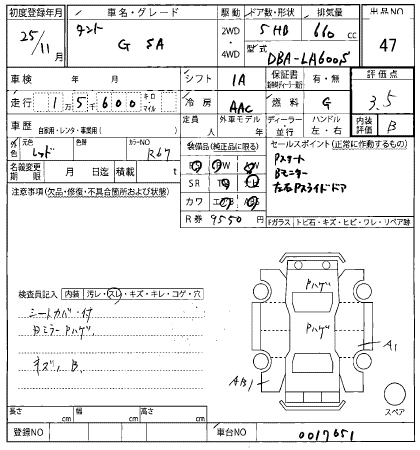 初度登録年月 車名・グレード 駆動 ドア数・形状 排気量 出品NO
25/11月 タント G SA 2WD ・ 4WD 5 HB 660 cc 47
型式 DBA-LA600S
車検 年 月 シフト IA 保証書 有・無 評価点
走行 1万5千600 キロ・マイル 冷房 AAC 燃料 G 3.5
車歴 自家用・レンタ・事業用( ) 定員 人 外車モデル 年 ディーラー 並行 ハンドル 左・右 内装評価 B
外色 元色 レッド 色替 カラーNO R67
装備品(純正品に限る) セールスポイント(正常に作動するもの)
Pスタート
Bモニター
左右Pスライドドア
名義変更期限 月 日迄 積載 t
PS PW
SR TV ナビ
カワ エアB
R券 9550 円
注意事項(欠品・修復・不具合箇所および状態)
Fガラス トビ石・キズ・ヒビ・ワレ・リペア跡
検査員記入 内装 汚レ・スレ・キズ・キレ・コゲ・穴
シートカバー付
Dミラー Pハゲ
キズ, B,
Pハゲ
Pハゲ
A1
AB1
スペア
長さ cm 幅 cm 高さ cm
登録NO 車台NO 0017651